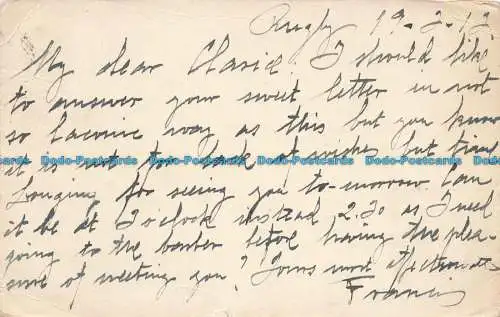 Rugby 19-2-12
My dear Clarice. I should like
to answer your sweet letter in not
so laconic way as this but you know
it is not for lack of wishes but time
Longing for seeing you to-morrow. Can
it be at 3 o'clock instead 2.30 as I need
going to the barber before having the plea-
sure of meeting you? Yours most affectionate
Francis
Dodo-Postcards Dodo-Postcards Dodo-Postcards Dodo-Postcards Dodo-Postcards Dodo-Postcards